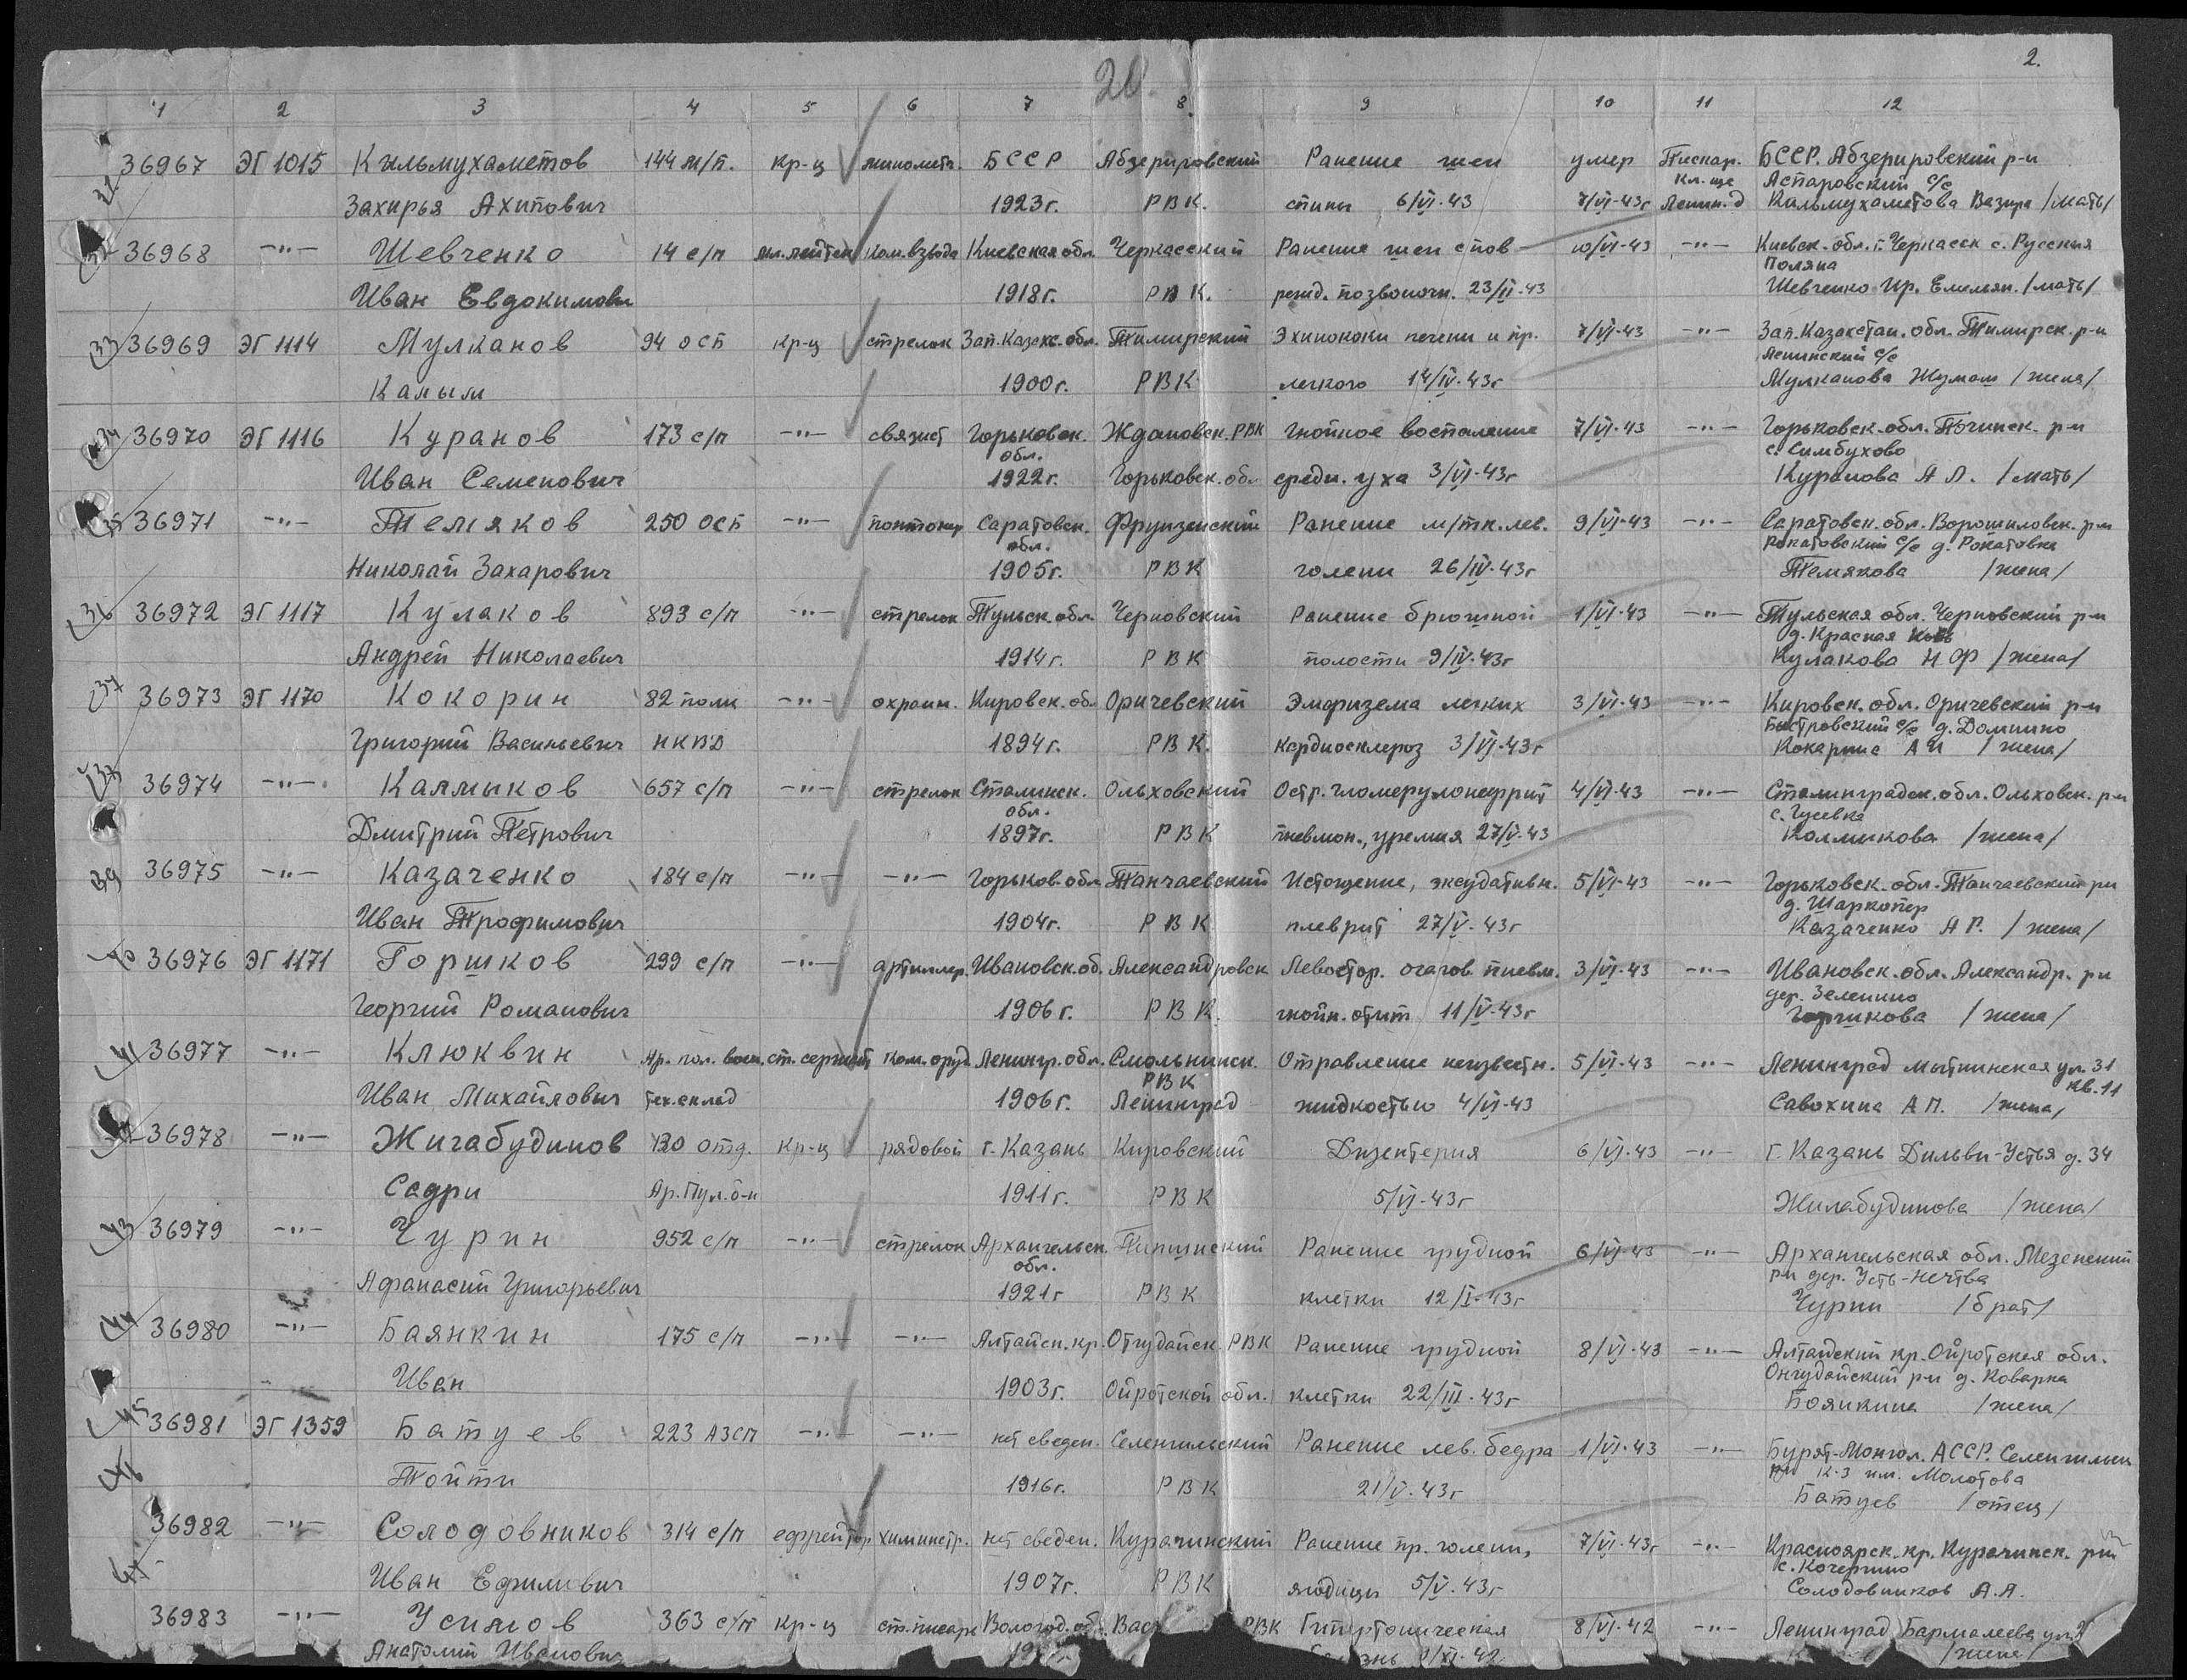 20.
2.
1 2 3 4 5 6 7 8 9 10 11 12
36967 ЭГ 1015 Кильмухаметов 144 м/п. кр-ц минометч. БССР Абзерировский Ранение шеи умер Пискар. БССР. Абзерировский р-н
кл-ще Астаровский с/с
Захирья Ахипович 1923г. РВК. спины 6/VI-43 7/VI-43г Ленин-д Кильмухаметова Вазира /мать/
36968 -"- Шевченко 14 с/п мл.лейтен ком.взвода Киевская обл. Черкасский Ранение шеи с пов- 10/VI-43 -"- Киевск. обл. г. Черкасск с. Русская
Поляна
Иван Евдокимови 1918г. РВК. ренд. позвоночн. 23/II-43 Шевченко Ир. Емельян. /мать/
33 36969 ЭГ 1114 Мулканов 94 осб кр-ц стрелок Зап.Казахс.обл. Тимирский Эхинококи печени и пр. 7/VI-43 -"- Зап.Казахстан. обл. Тимирск. р-н
Ленинский с/с
Калым 1900г. РВК легкого 14/IV-43г Мулканова Жумаш /жена/
34 36970 ЭГ 1116 Куранов 173 с/п -"- связист Горьковск. Ждановск. РВК Гнойное воспаление 7/VI-43 -"- Горьковск. обл. Починск. р-н
обл. с. Симбухово
Иван Семенович 1922г. Горьковск. об. средн. уха 3/VI-43г Куранова А Л. /мать/
35 36971 -"- Темяков 250 осб -"- понтонер Саратовск. Фрунзенский Ранение м/тк. лев. 9/VI-43 -"- Саратовск. обл. Ворошиловск. р-н
обл. Рокатовский с/с д. Рокатовка
Николай Захарович 1905г. РВК голени 26/IV-43г Темякова /жена/
36 36972 ЭГ 1117 Кулаков 893 с/п -"- стрелок Тульск. обл. Черновский Ранение брюшной 1/VI-43 -"- Тульская обл. Черновский р-н
д. Красная
Андрей Николаевич 1914г. РВК полости 9/IV-43г Кулакова Н Ф /жена/
37 36973 ЭГ 1170 Кокорин 82 полк -"- охранн. Кировск. об. Оричевский Эмфизема легких 3/VI-43 -"- Кировск. обл. Оричевский р-н
Быстровский с/с д. Домнино
Григорий Васильевич НКВД 1894г. РВК. кардиосклероз 3/VI-43г Кокарина А И /жена/
36974 -"- Калмыков 657 с/п -"- стрелок Сталинск. Ольховский Остр. гломерулонефрит 4/VI-43 -"- Сталинградск. обл. Ольховск. р-н
обл. с. Гусевка
Дмитрий Петрович 1897г. РВК пневмон., уремия 27/V-43 Колмыкова /жена/
39 36975 -"- Казаченко 184 с/п -"- -"- Горьков. обл. Танчаевский Истощение, эксудативн. 5/VI-43 -"- Горьковск. обл. Танчаевский р-н
д. Шаркопер
Иван Трофимович 1904г. РВК плеврит 27/V-43г Казаченко А Р. /жена/
40 36976 ЭГ 1171 Горшков 299 с/п -"- артиллер. Ивановск.об. Александровск Левостор. очагов. пневм. 3/VI-43 -"- Ивановск. обл. Александр. р-н
дер. Зеленино
Георгий Романович 1906г. РВК. гнойн. отит 11/V-43г Горшкова /жена/
41 36977 -"- Клюквин Ар. пол. воен. ст. сержант ком. оруд. Ленингр. обл. Смольнинск. Отравление неизвестн. 5/VI-43 -"- Ленинград мытнинская ул. 31
РВК кв. 11
Иван Михайлович тех.склад 1906г. Ленинград жидкостью 4/VI-43 Савохина А П. /жена/
36978 -"- Жигабудинов 130 отд. кр-ц рядовой г. Казань Кировский Дизентерия 6/VI-43 -"- г. Казань Дильви-Устья д. 34
Садри Ар. Пул. б-н 1911г. РВК 5/VI-43г Жилабудинова /жена/
43 36979 -"- Чурин 952 с/п -"- стрелок Архангельск. Ранение грудной 6/VI-43 -"- Архангельская обл. Мезенский
обл. р-н дер. Усть-Нечтва
Афанасий Григорьевич 1921г РВК клетки 12/I-43г Чурин /брат/
44 36980 -"- Баянкин 175 с/п -"- -"- Алтайск. кр. Отгудайск. РВК Ранение грудной 8/VI-43 -"- Алтайский кр. Ойротская обл.
Онгудайский р-н д. Коварка
Иван 1903г. Ойротской обл. клетки 22/III-43г Боянкина /жена/
45 36981 ЭГ 1359 Батуев 223 АЗСП -"- -"- нет сведен. Селенгильский Ранение лев. бедра 1/VI-43 -"- Бурят-Монгол. АССР. Селенгильск
р-н к-з им. Молотова
Тойти 1916г. РВК 21/V-43г Батуев /отец/
46 36982 -"- Солодовников 314 с/п ефрейтор химинстр. нет сведен. Курагинский Ранение пр. голени, 7/VI-43г -"- Красноярск. кр. Курагинск. р-н
с. Кочергино
Иван Ефимович 1907г. РВК ягодицы 5/V-43г Солодовников А.А.
36983 -"- Усилов 363 с/п кр-ц ст.писарь Вологод. об. Вас РВК Гипертоническая 8/VI-42 -"- Ленинград Бармалеева ул.
Анатолий Иванович /жена/